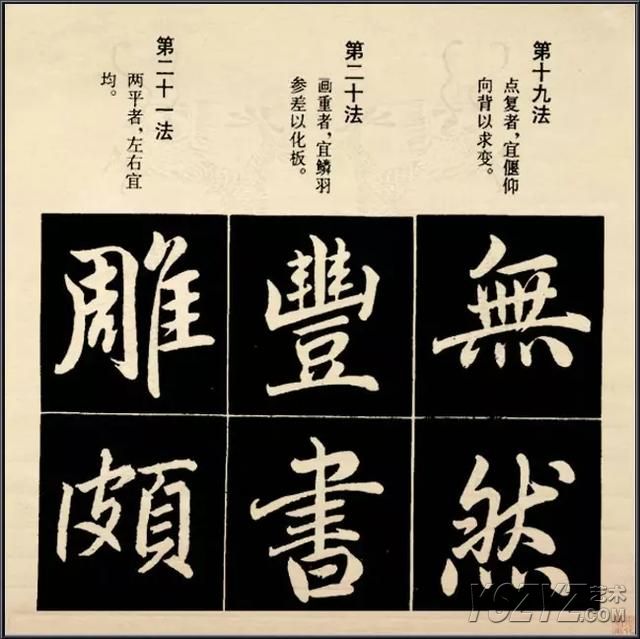 第十九法
点复者，宜偃仰
向背以求变。
無
然
第二十法
画重者，宜鳞羽
参差以化板。
豐
書
第二十一法
两平者，左右宜
均。
雕
頗
YCZYZ艺术
.COM